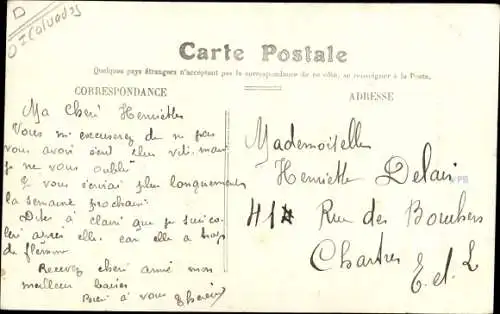 D
Calvados
Carte Postale
Quelques pays étrangers n'acceptent pas la correspondance de ce côté, se renseigner à la Poste.
CORRESPONDANCE
ADRESSE
Ma cheri Henriette
Vous m'excuserez de ne pas
vous avoir écrit plus vite mais
je ne vous oublie
Je vous écrirai plus longuement
la semaine prochain
Dites à clair que je suis
après elle car elle a trop
de flemme
Recevez cheri amie mon
meilleur baiser
à vous
Mademoiselle
Henriette Delain
41 Rue des Bouchers
Chartres
E et L